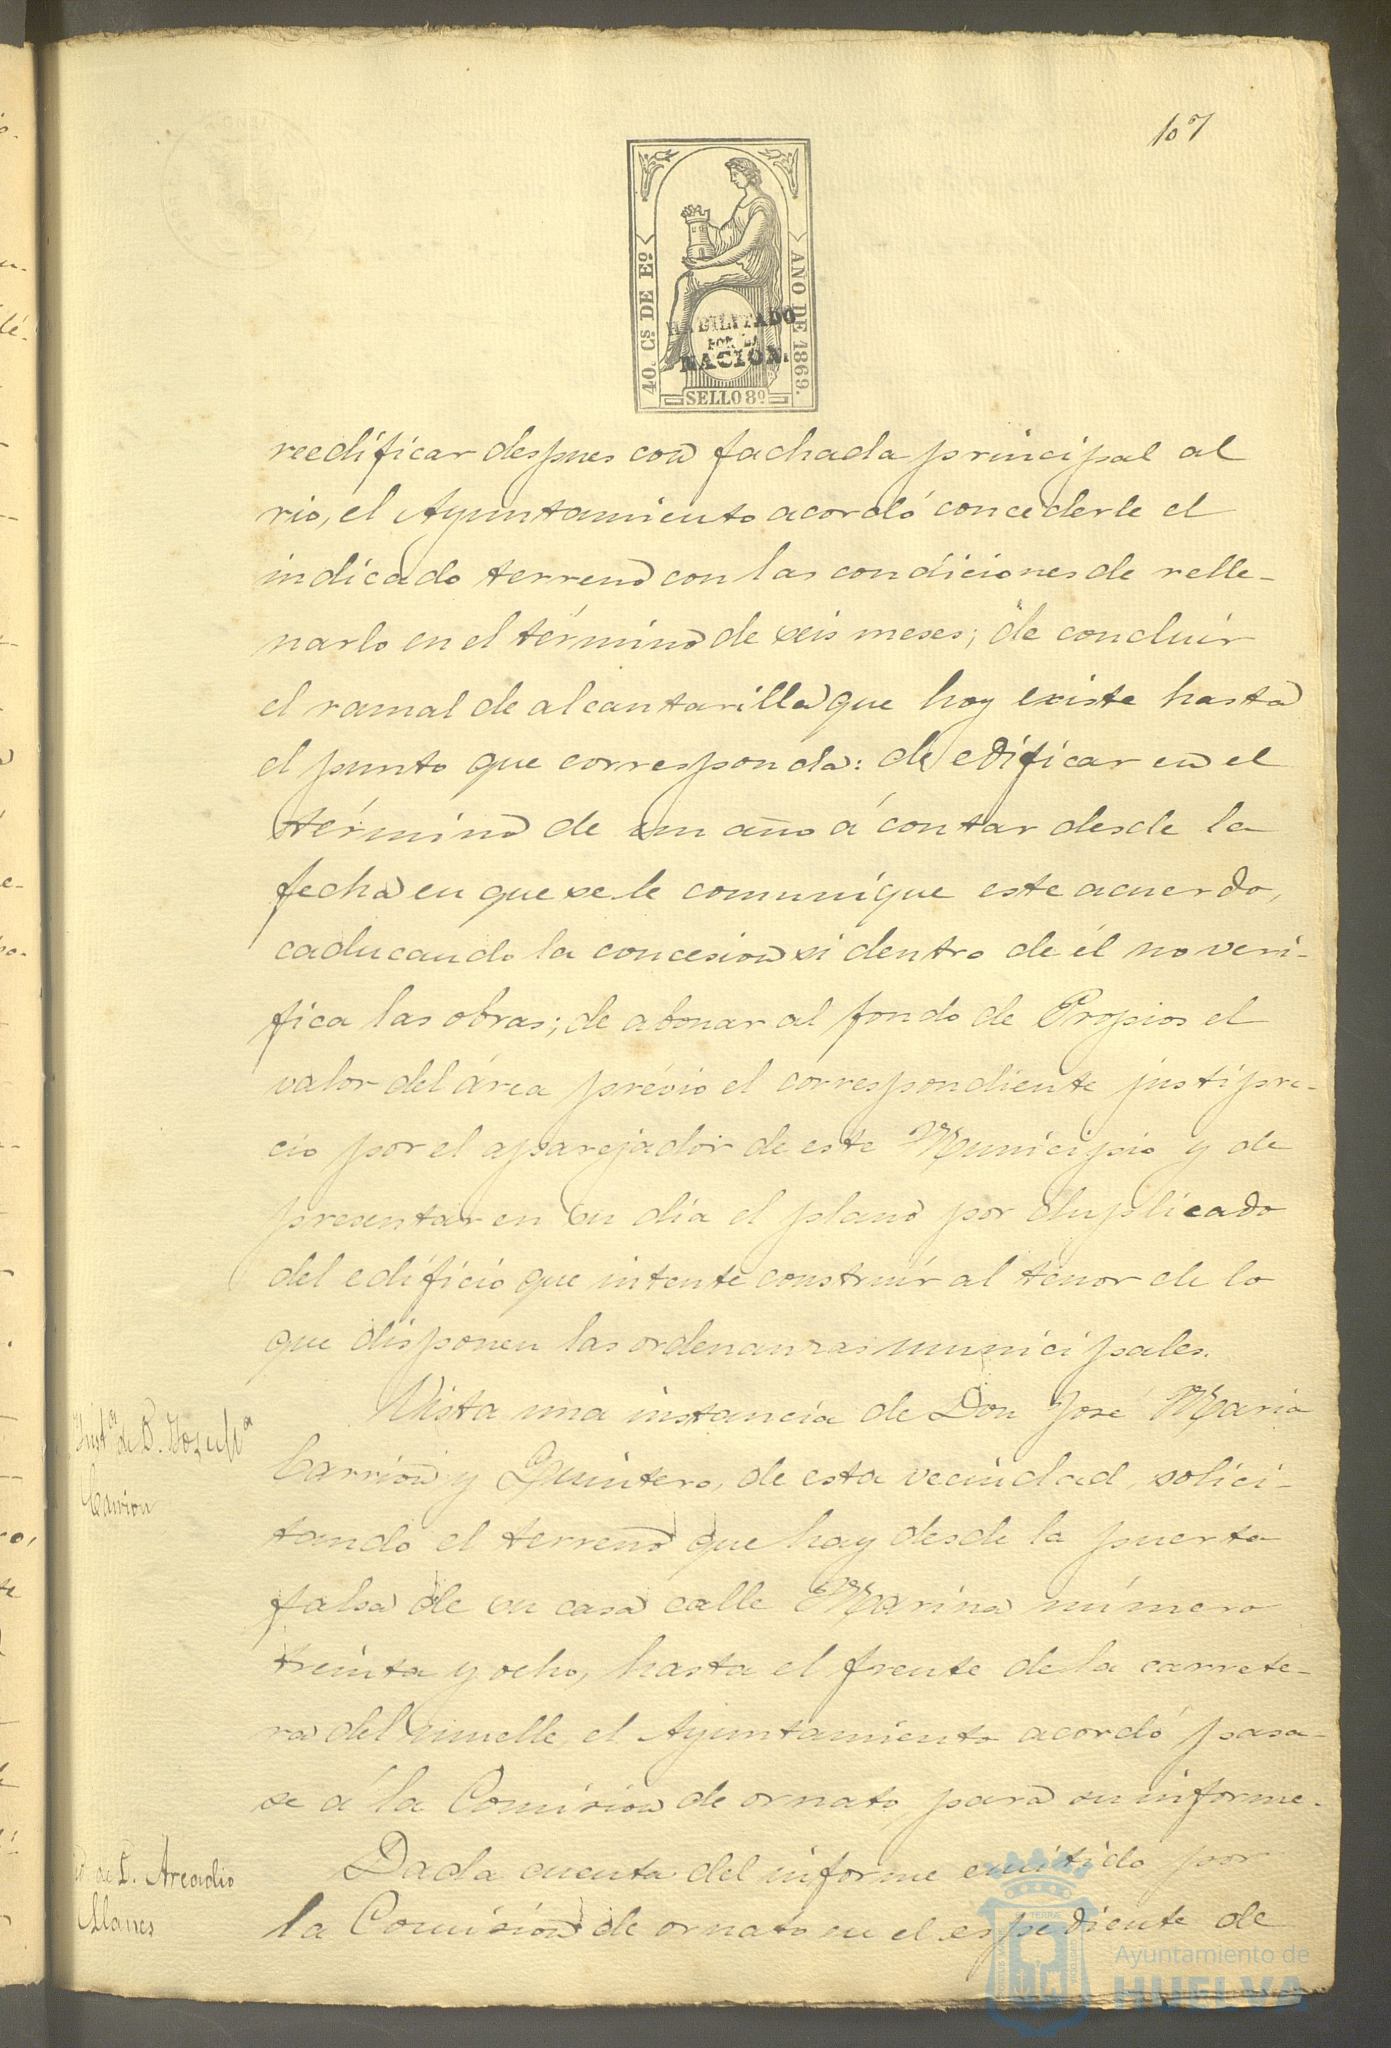 107
40. Cs DE Eº
AÑO DE 1869.
HABILITADO
POR LA
NACION.
SELLO 8º
reedificar despues con fachada principal al
rio, el Ayuntamiento acordó concederle el
indicado terreno con las condiciones de relle-
narlo en el término de seis meses; de concluir
el ramal de alcantarilla que hoy existe hasta
el punto que corresponda: de edificar en el
término de un año á contar desde la
fecha en que se le comunique este acuerdo,
caducando la concesion si dentro de él no veri-
fica las obras; de abonar al fondo de Propios el
valor del área prévio el correspondiente justipre-
cio por el aparejador de este Municipio y de
presentar en su dia el plano por duplicado
del edificio que intente construir al tenor de lo
que disponen las ordenanzas municipales.
Instª de D. José Mª
Carrion
Vista una instancia de Don José Maria
Carrion y Quintero, de esta vecindad, solici-
tando el terreno que hay desde la puerta
falsa de su casa calle Marina número
treinta y ocho, hasta el frente de la carrete-
ra del muelle, el Ayuntamiento acordó pasa-
se á la Comision de ornato para su informe.
de D. Arcadio
Llanes
Dada cuenta del informe emitido por
la Comision de ornato en el espediente de
Ayuntamiento de
HUELVA